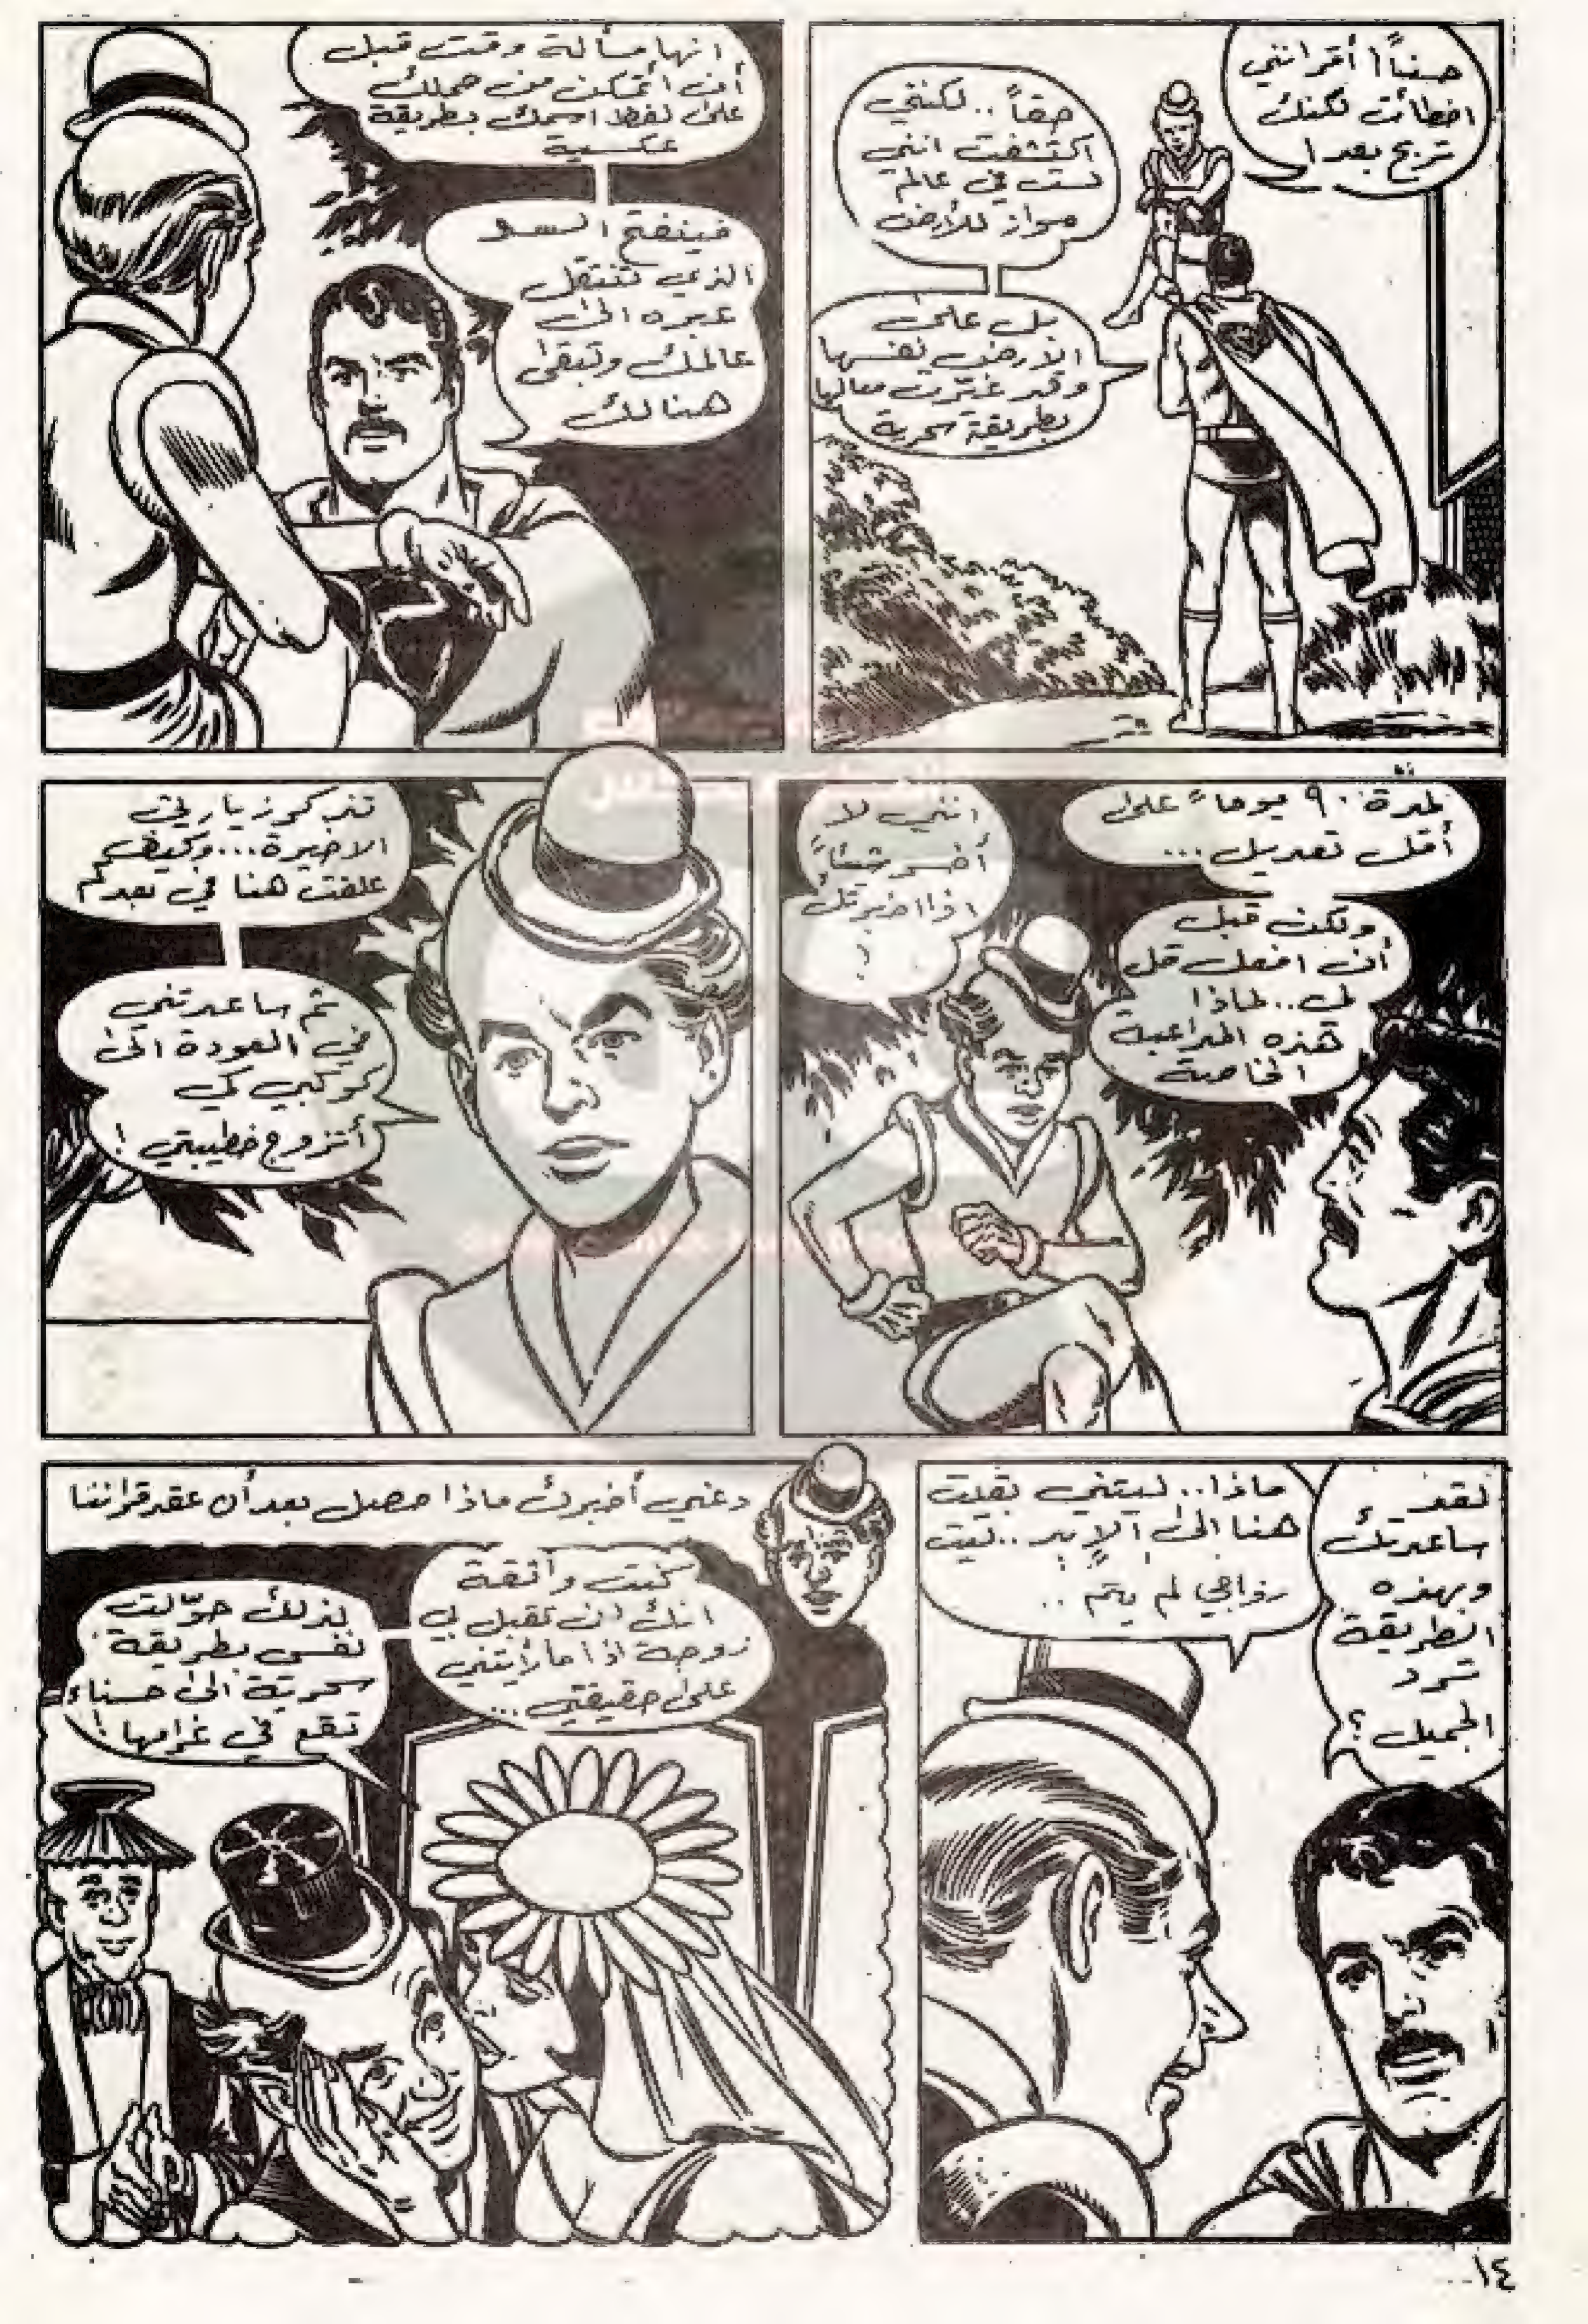 حسناً! أقر انني
اخطأت لكنك
تربح بعد!
حقاً.. لكنني
اكتشفت انني
لست في عالم
مواز للأرض
بل على
الارض نفسها
وقد غيّرت معالمها
بطريقة سحرية
انها مسألة وقت قبل
أن أتمكن من حملك
على لفظ اسمك بطريقة
عكسية
فينفتح السد
الذي تنتقل
عبره الى
عالمك وتبقى
هنالك
لمدة ٩٠ يوماً على
أقل تعديل...
ولكن قبل
أن افعل قل
لي.. لماذا
هذه المداعبة
الخاصة
انني لا
أخسر شيئاً
اذا اخبرتك
!
تذكر زيارتي
الاخيرة... وكيف
علقت هنا في بعدكم
ثم ساعدتني
في العودة الى
كوكبي كي
أتزوج خطيبتي!
لقد
ساعدتك
وبهذه
الطريقة
ترد
الجميل؟
ماذا.. ليتني بقيت
هنا الى الأبد.. ليت
زواجي لم يتم..
دعني أخبرك ماذا حصل بعد أن عقد قراننا
كنت واثقة
انك لن تقبل بي
زوجة اذا ما رأيتني
على حقيقتي...
لذلك حوّلت
نفسي بطريقة
سحرية الى حسناء
تقع في غرامها!
١٤